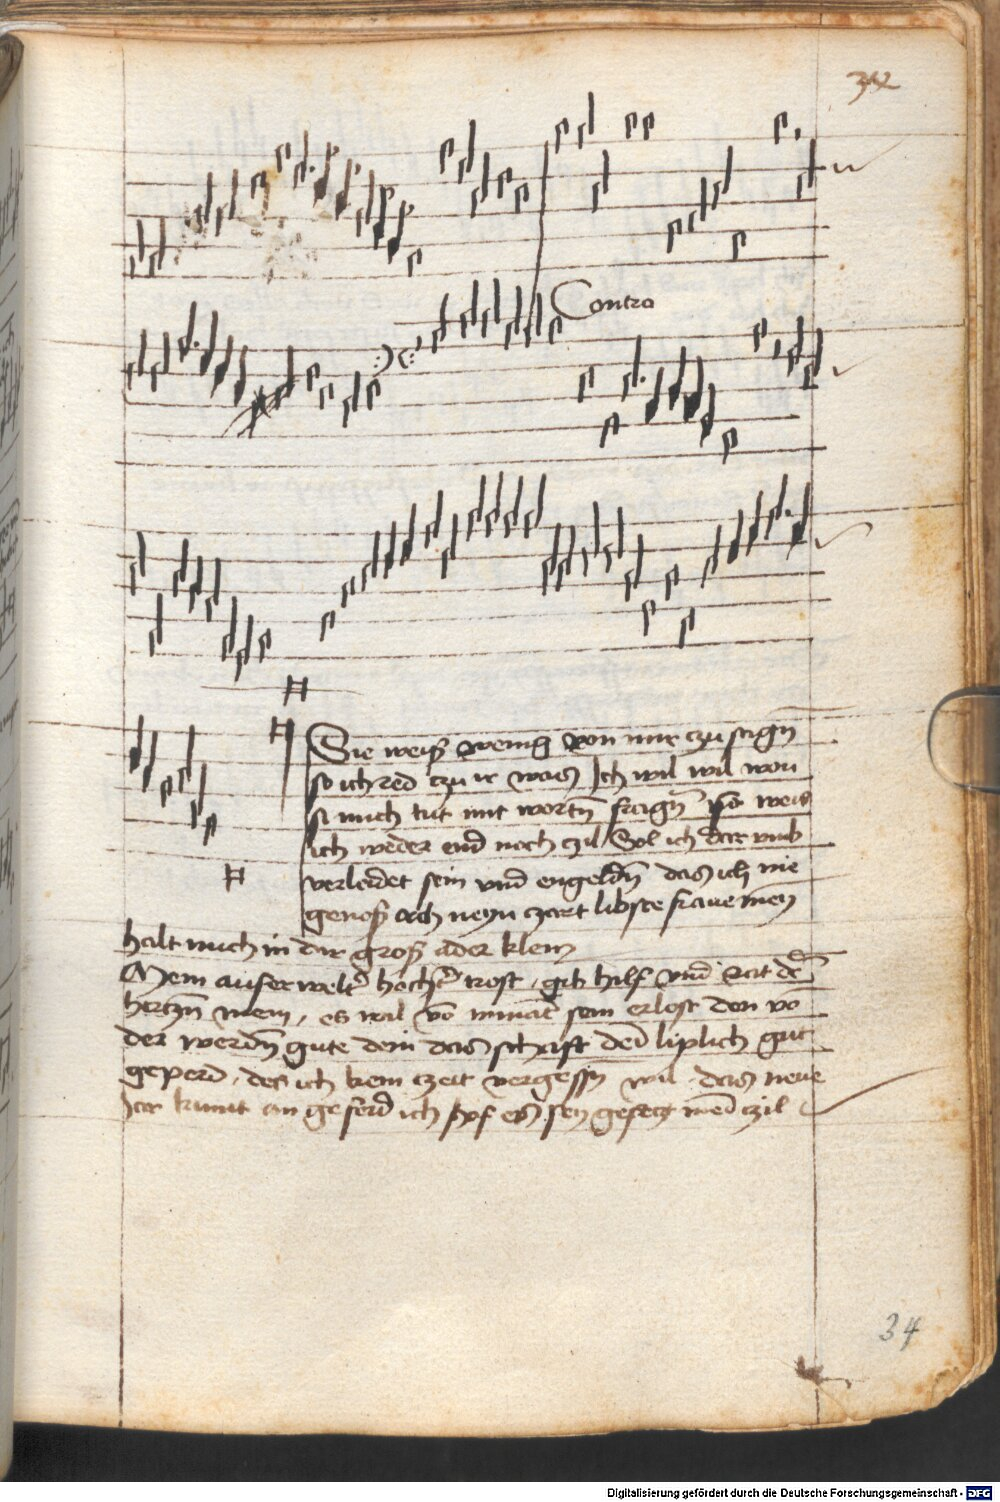 34
Contra
Sie weiß wenig von mir czu sagn
so ich red czu ir was Ich wil wil won
si mich tut mit wortn fragn so weis
ich weder end noch czil Sol ich dar vmb
verleidet sein vnd engeldn das ich nie
genoß ach neyn czart libste fraue mein
halt mich in dir groß ader klein
Mein auserwelt hochst trost, gib hilf vnd rat dem
herczn mein, es wil vo mir sein erlost den vo
der werdn gute dein das schaft dei liplich gut
geperd, des ich kein czeit vergessn wil das neue
Jar kumt an geferd ich hof es sey gesecz mei czil
34
Digitalisierung gefördert durch die Deutsche Forschungsgemeinschaft - DFG